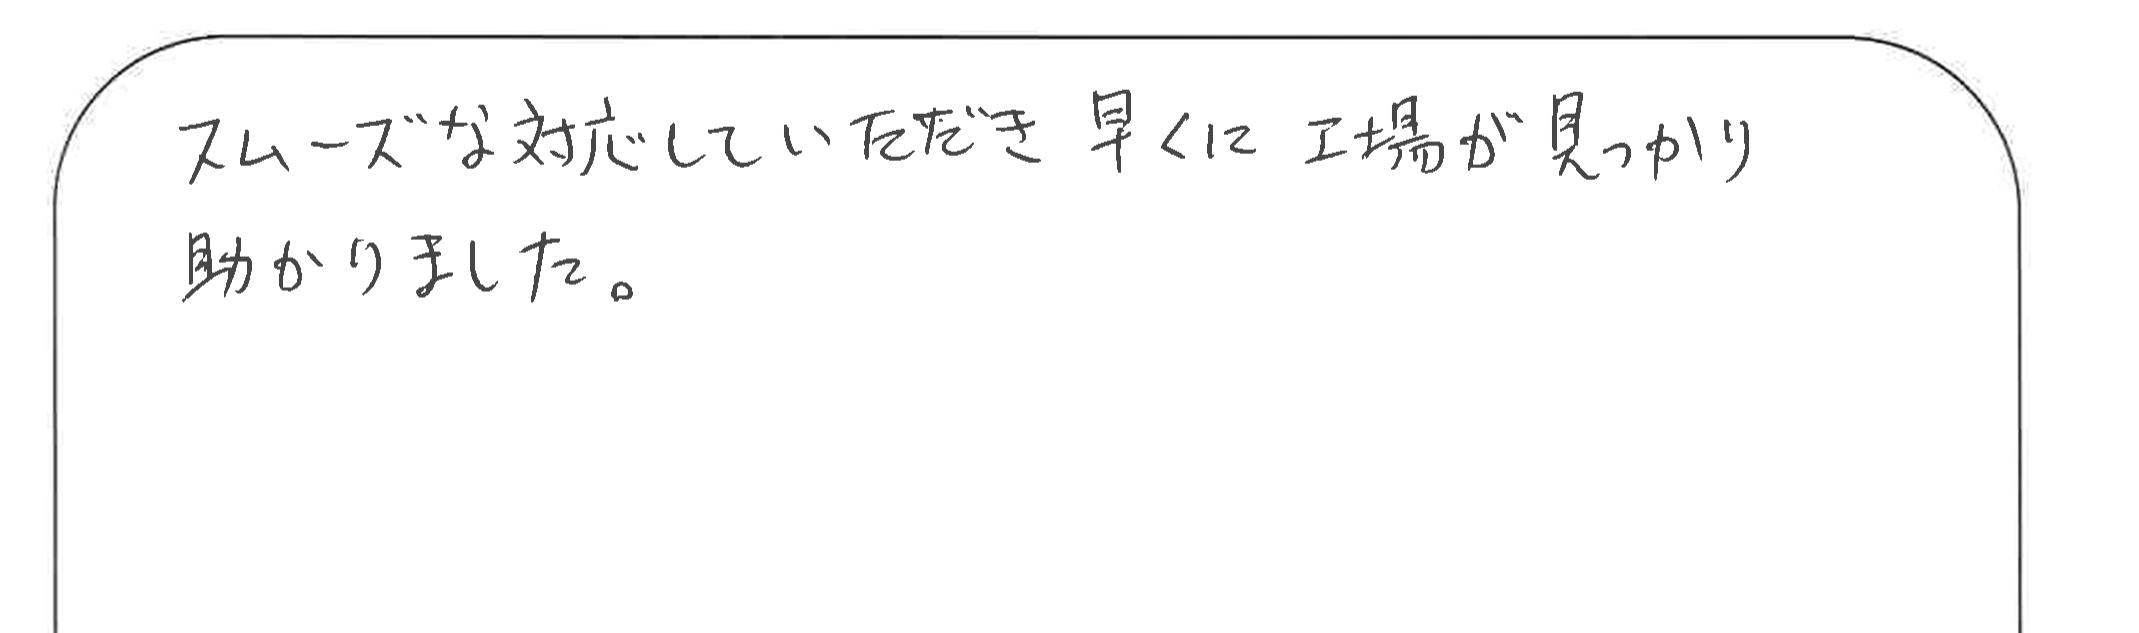 スムーズな対応していただき 早くに 工場が見つかり
助かりました。